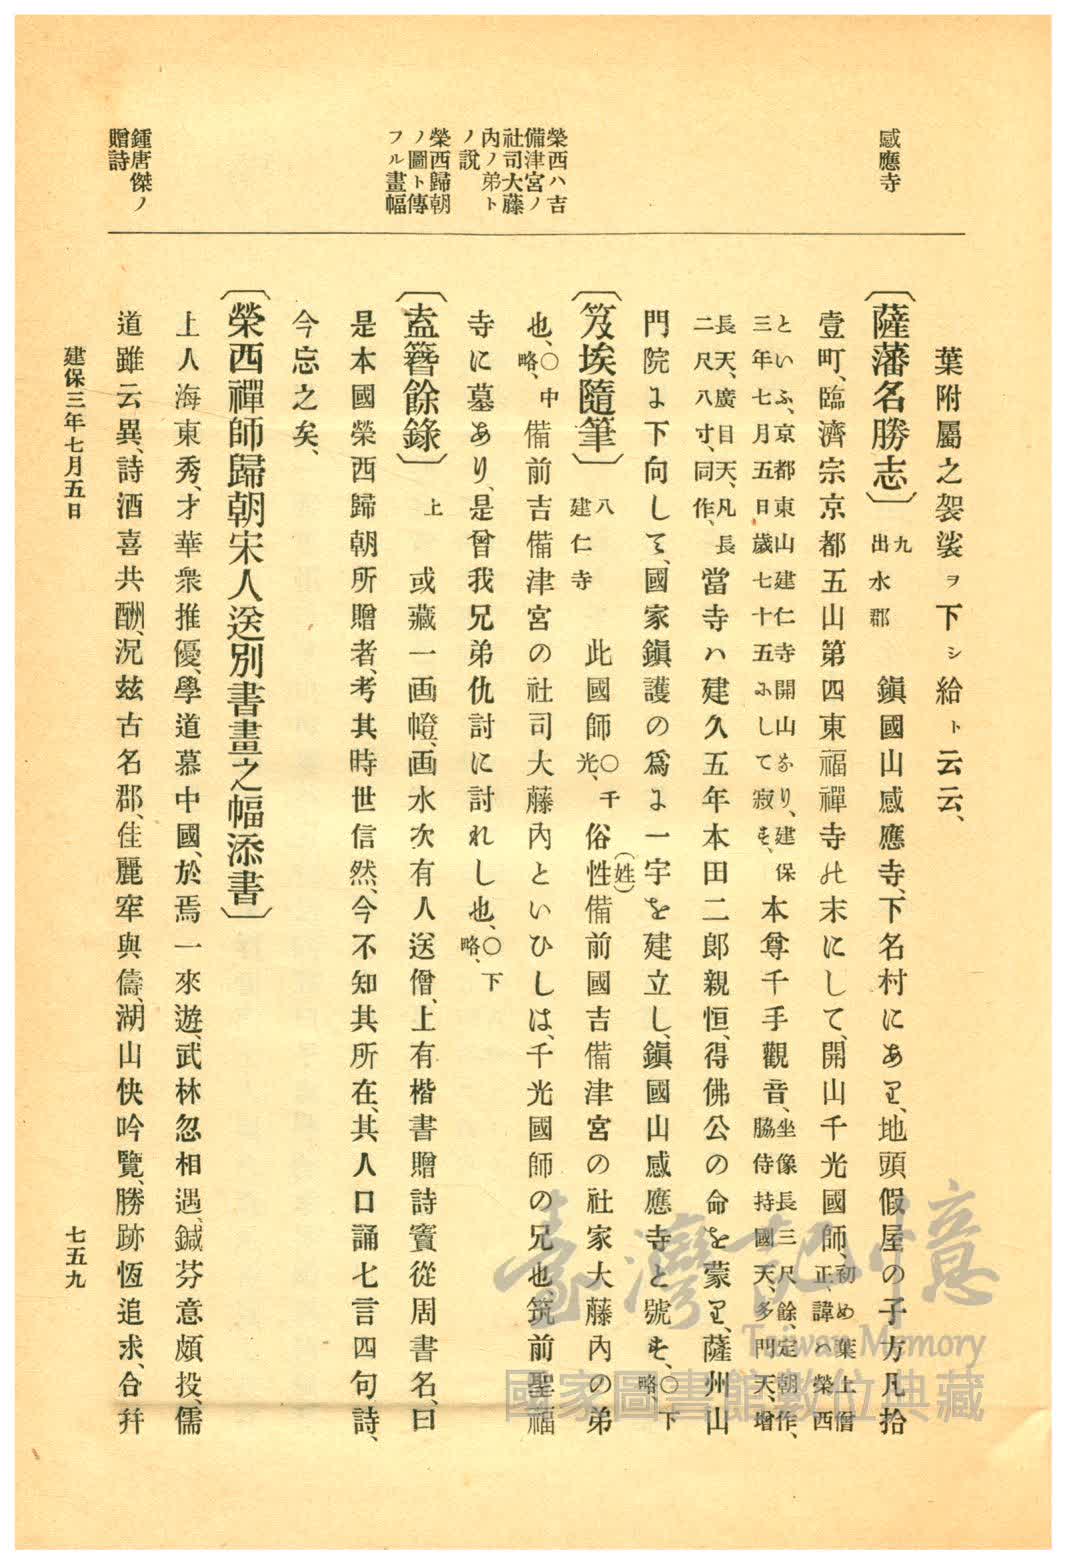 感應寺
榮西ハ吉
備津宮ノ
社司大藤
内ノ弟ト
ノ說
榮西歸朝
ノ圖ト傳
フル畫幅
鍾唐傑ノ
贈詩
葉附屬之袈裟ヲ下シ給ト云云、
〔薩藩名勝志〕九出水郡 鎭國山感應寺、下名村にあり、地頭假屋の子方凡拾
壹町、臨濟宗京都五山第四東福禪寺の末にして、開山千光國師、初め葉上僧正、諱ハ榮西
といふ、京都東山建仁寺開山なり、建保三年七月五日歲七十五にして寂す、本尊千手觀音、坐像長三尺餘、定朝作、脇侍持國天、多門天、增
長天、廣目天、凡長二尺八寸、同作、當寺ハ建久五年本田二郎親恒、得佛公の命を蒙り、薩州山
門院に下向して、國家鎭護の爲に一宇を建立し、鎭國山感應寺と號す、〇下略、
〔笈埃隨筆〕八建仁寺 此國師〇千光、俗性(姓)備前國吉備津宮の社家大藤内の弟
也、〇中略、備前吉備津宮の社司大藤内といひしは、千光國師の兄也筑前聖福
寺に墓あり、是曾我兄弟仇討に討れし也、〇下略、
〔盍簪餘錄〕上 或藏一画㡧、画水次有人送僧、上有楷書贈詩竇從周書名、曰
是本國榮西歸朝所贈者、考其時世信然、今不知其所在、其人口誦七言四句詩、
今忘之矣、
〔榮西禪師歸朝宋人送別書畫之幅添書〕
上人海東秀、才華衆推優、學道慕中國、於焉一來遊、武林忽相遇、鍼芬意頗投、儒
道雖云異、詩酒喜共酬、況玆古名郡、佳麗罕與儔、湖山快吟覽、勝跡恆追求、合幷
建保三年七月五日
七五九
臺灣記憶
Taiwan Memory
國家圖書館數位典藏